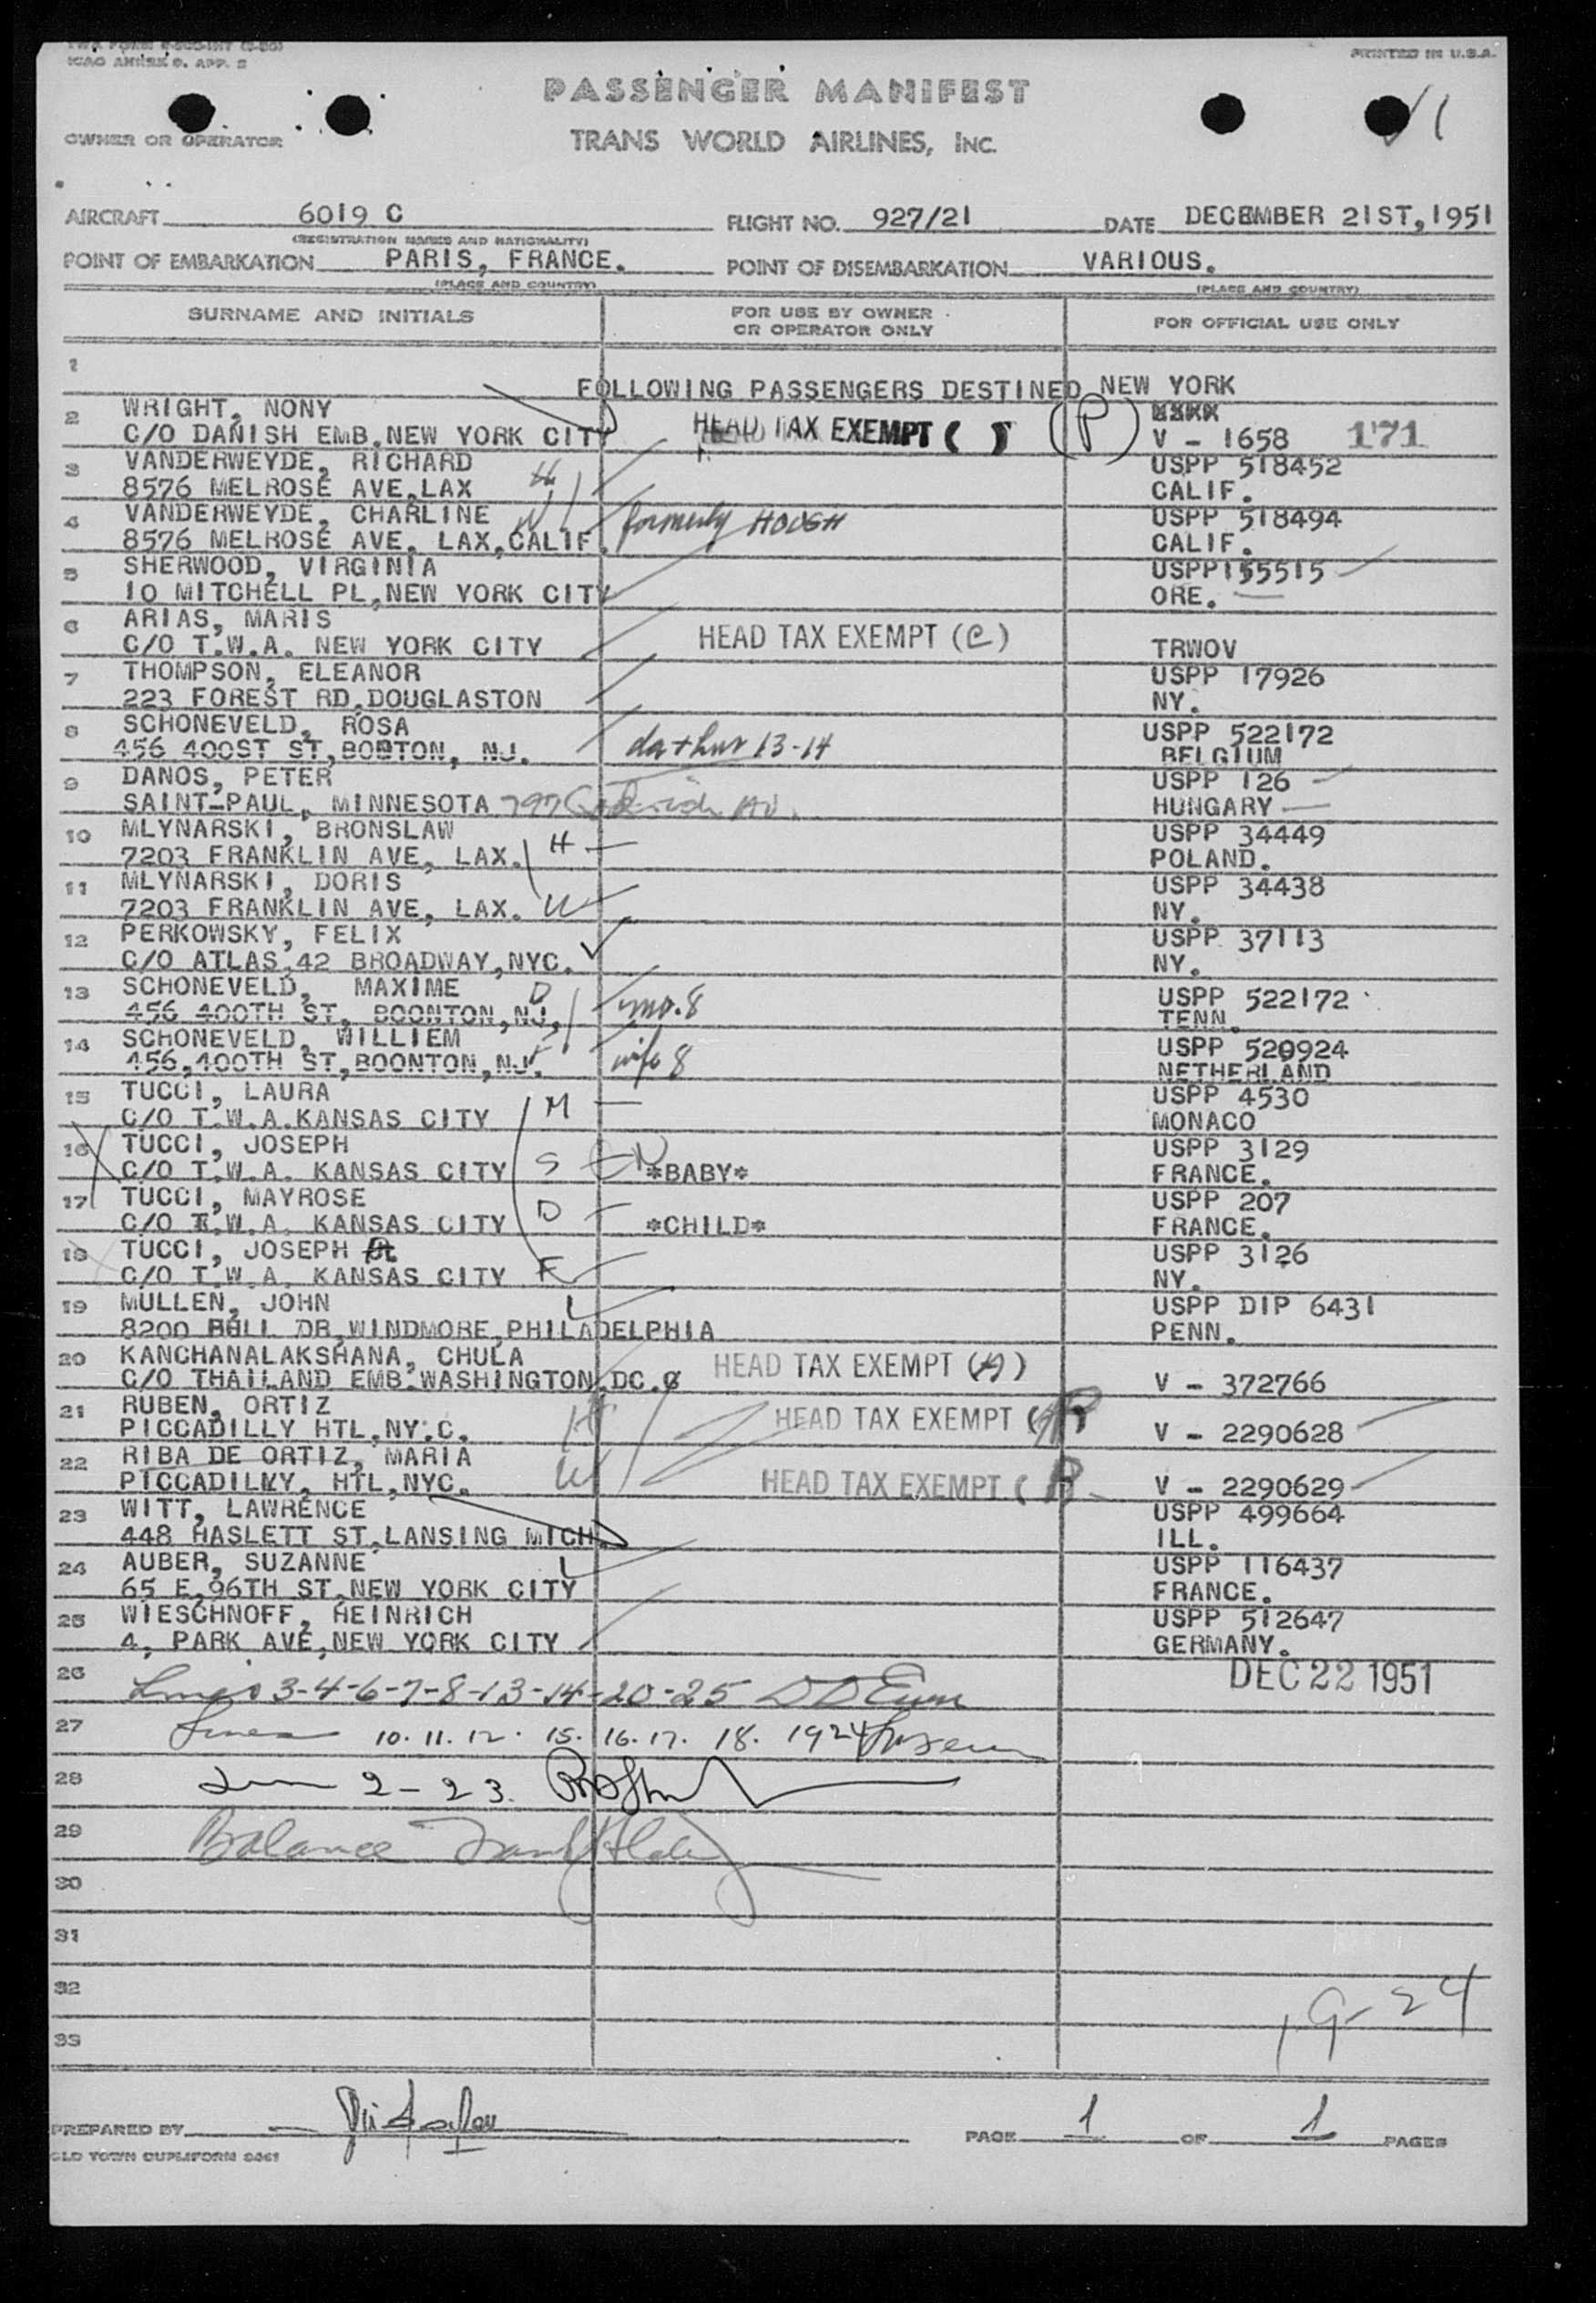 TWA FORM
ICAO ANNEX 9. APP. 
PRINTED IN U.S.A.
PASSENGER MANIFEST
OWNER OR OPERATOR
TRANS WORLD AIRLINES, INC.
AIRCRAFT 6019 C
FLIGHT NO. 927/21
DATE DECEMBER 21ST, 1951
(REGISTRATION MARKS AND NATIONALITY)
POINT OF EMBARKATION PARIS, FRANCE.
POINT OF DISEMBARKATION VARIOUS.
(PLACE AND COUNTRY) (PLACE AND COUNTRY)
SURNAME AND INITIALS
FOR USE BY OWNER
OR OPERATOR ONLY
FOR OFFICIAL USE ONLY
1
FOLLOWING PASSENGERS DESTINED NEW YORK
2 WRIGHT, NONY
C/O DANISH EMB.NEW YORK CITY HEAD TAX EXEMPT ( ) (P) V - 1658 171
3 VANDERWEYDE, RICHARD USPP 518452
8576 MELROSE AVE,LAX H CALIF.
4 VANDERWEYDE, CHARLINE W formerly HOUGH USPP 518494
8576 MELROSE AVE, LAX,CALIF. CALIF.
5 SHERWOOD, VIRGINIA USPP155515
10 MITCHELL PL,NEW YORK CITY ORE.
6 ARIAS, MARIS
C/O T.W.A. NEW YORK CITY HEAD TAX EXEMPT (C) TRWOV
7 THOMPSON, ELEANOR USPP 17926
223 FOREST RD,DOUGLASTON NY.
8 SCHONEVELD, ROSA USPP 522172
456 400ST ST,BOBTON, NJ. da+hus 13-14 BELGIUM
9 DANOS, PETER USPP 126
SAINT-PAUL, MINNESOTA 797 HUNGARY
10 MLYNARSKI, BRONSLAW USPP 34449
7203 FRANKLIN AVE, LAX. H POLAND.
11 MLYNARSKI, DORIS USPP 34438
7203 FRANKLIN AVE, LAX. W NY.
12 PERKOWSKY, FELIX USPP 37113
C/O ATLAS,42 BROADWAY,NYC. NY.
13 SCHONEVELD, MAXIME D USPP 522172
456 400TH ST, BOONTON,NJ, mo.8 TENN.
14 SCHONEVELD, WILLIEM USPP 520924
456,400TH ST,BOONTON,NJ. wife 8 NETHERLAND
15 TUCCI, LAURA USPP 4530
C/O T.W.A.KANSAS CITY M MONACO
16 TUCCI, JOSEPH USPP 3129
C/O T.W.A. KANSAS CITY S *BABY* FRANCE.
17 TUCCI, MAYROSE USPP 207
C/O T.W.A. KANSAS CITY D *CHILD* FRANCE.
18 TUCCI, JOSEPH USPP 3126
C/O T.W.A. KANSAS CITY F NY.
19 MULLEN, JOHN USPP DIP 6431
8200 HULL DR,WINDMORE,PHILADELPHIA PENN.
20 KANCHANALAKSHANA, CHULA HEAD TAX EXEMPT (A)
C/O THAILAND EMB.WASHINGTON,DC. V - 372766
21 RUBEN, ORTIZ HEAD TAX EXEMPT (
PICCADILLY HTL,NY.C. H V - 2290628
22 RIBA DE ORTIZ, MARIA
PICCADILLY, HTL,NYC. W HEAD TAX EXEMPT ( V - 2290629
23 WITT, LAWRENCE USPP 499664
448 HASLETT ST,LANSING MICH. ILL.
24 AUBER, SUZANNE USPP 116437
65 E,96TH ST,NEW YORK CITY FRANCE.
25 WIESCHNOFF, HEINRICH USPP 512647
4, PARK AVE,NEW YORK CITY GERMANY.
26 Lines 3-4-6-7-8-13-14-20-25 DEC 22 1951
27 Lines 10. 11. 12. 15. 16. 17. 18. 19 24
28 2-23.
29 Balance
30
31
32
33
19-24
PREPARED BY
PAGE 1 OF 1 PAGES
OLD TOWN DUPLIFORM